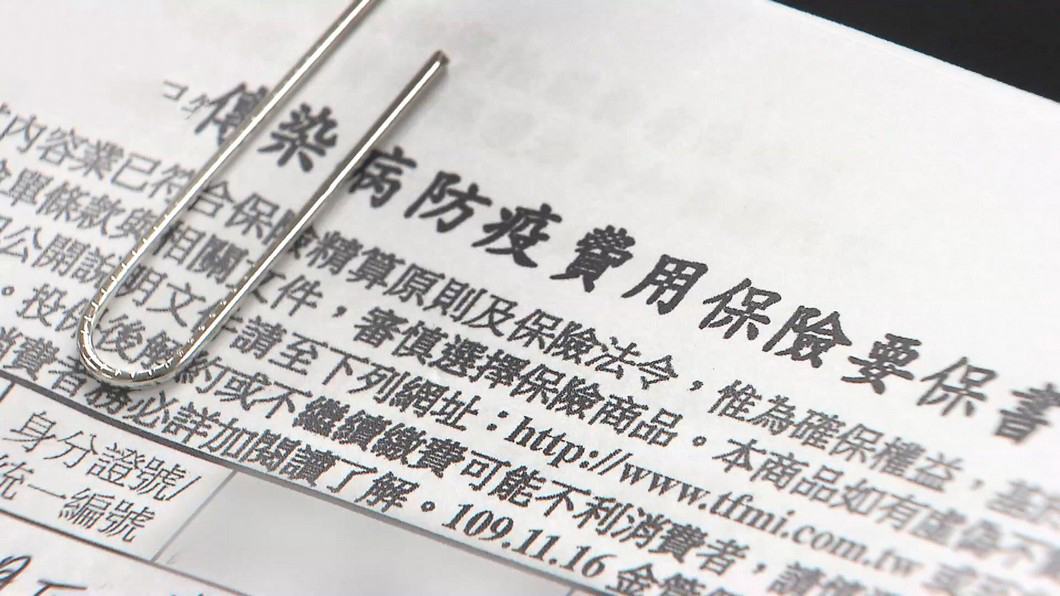 傳染病防疫費用保險要保書
內容業已符合保險精算原則及保險法令，惟為確保權益，基
單條款與相關文件，審慎選擇保險商品。本商品如有虛偽不
公開說明文件請至下列網址：http://www.tfmi.com.tw
。投保後解約或不繼續繳費可能不利消費者，請
消費者務必詳加閱讀了解。109.11.16 金管
身分證號/
統一編號